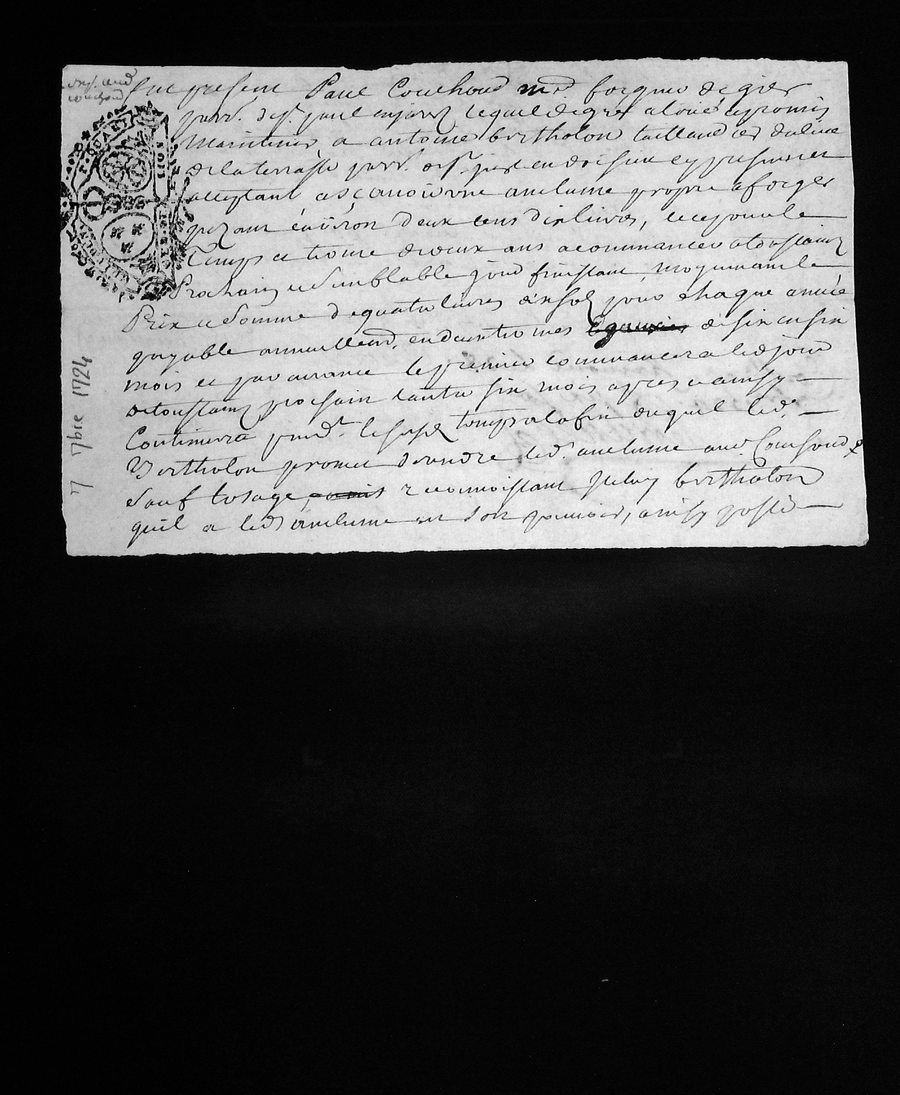 fut present Paul Couchoud md forgeur de gier
parr. de st. paul en jarez lequel de gré a loüé et promis
maintenir a antoine bertholon taillandier du lieu
de la terrasse parr. de st. just en doisieu cy present et
acceptant a sçavoir une anclume propre a forger
pezant environ deux cens dix livres, ce pour le
temps et terme de deux ans a commancer a toussaint
Prochain et semblable jour finissant, moyennant le
Prix et Somme de quatre livres dix sols pour chaque année
payable annuellemt. en deux termes de six en six
mois et par avance le premier commancera led jour
de toussaint prochain l'autre six mois apres et ainsy
Continuera pendt. lesusd temps a la fin duquel led.
Bertholon promet de rendre led. anclume aud. Couchoud
Sauf lusage, reconnoissant iceluy bertholon
quil a led anclume en son pouvoir, ainsy passé
7 7bre 1724